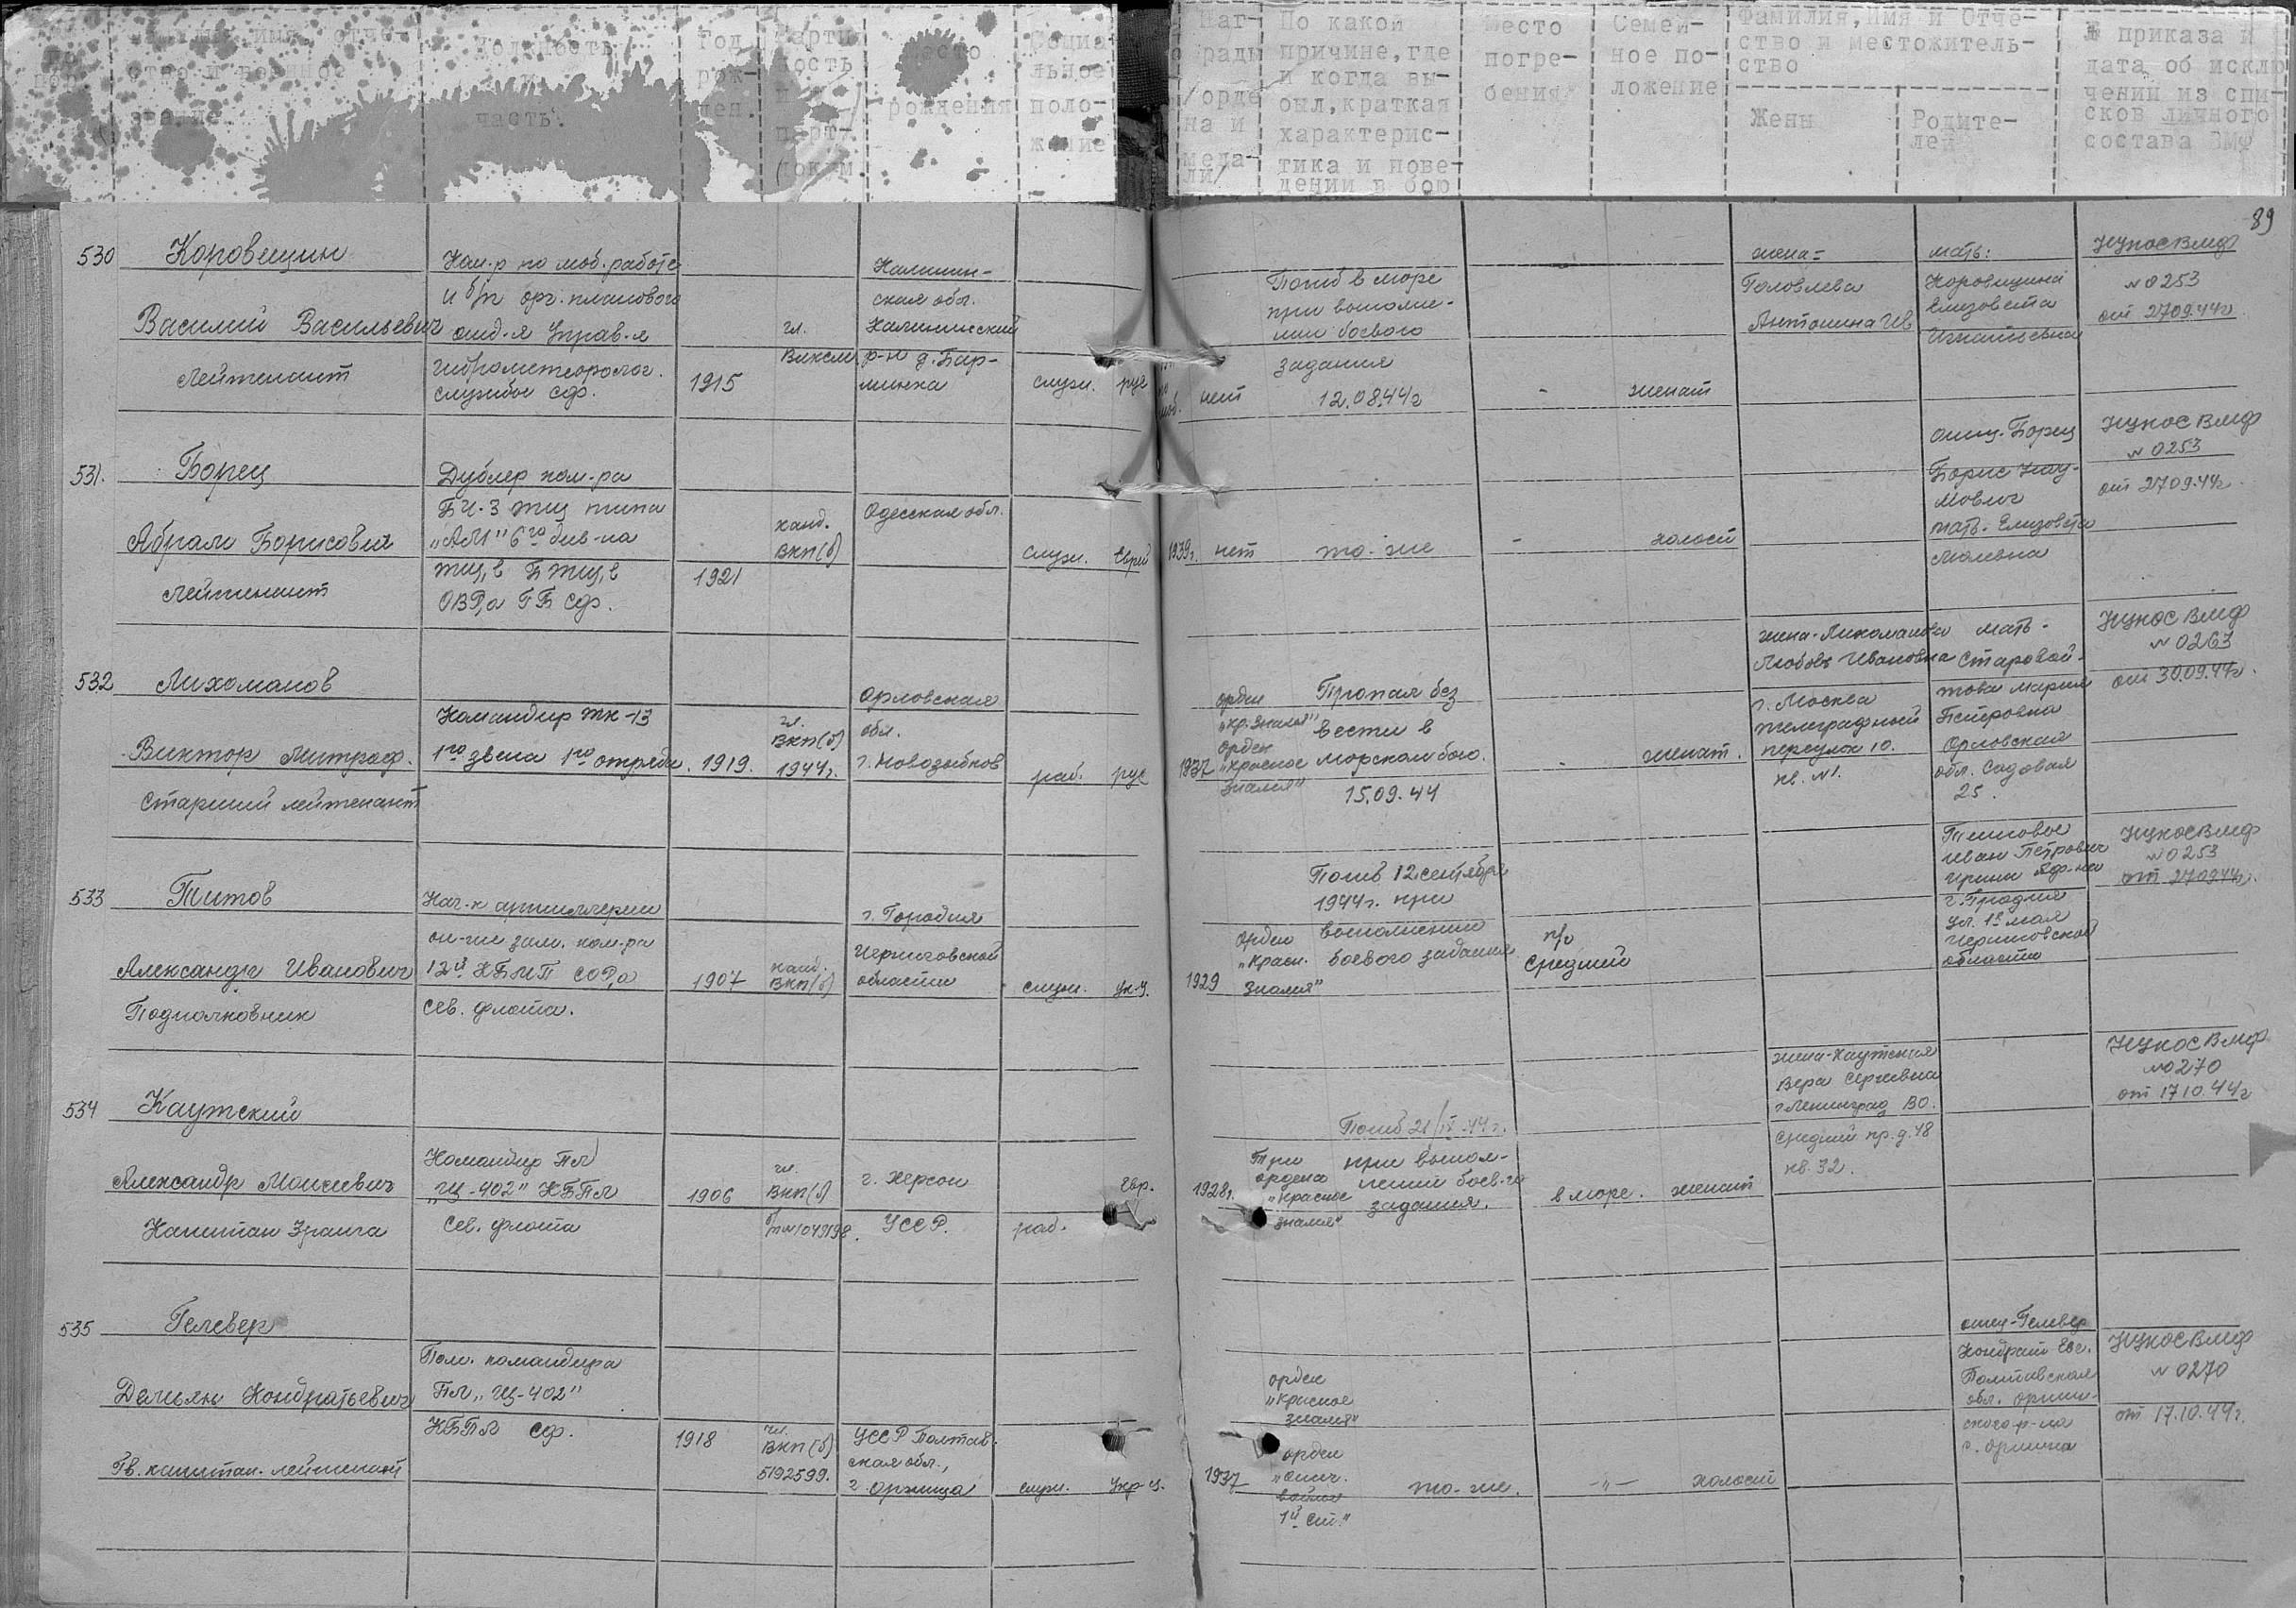 Наг-
рады
/орде
на и
меда-
ли/
По какой
причине, где
и когда вы-
был, краткая
характерис-
тика и пове-
дении в бою
Место
погре-
бения
Семей-
ное по-
ложение
Фамилия, Имя и Отче-
ство и местожитель-
ство
Жены
Родите-
лей
№ приказа и
дата об исклю
чении из спи-
сков личного
состава ВМФ
Должность
и
часть
Год
рож-
ден.
Место
рождения
Социа
льное
поло-
жение
89
530
Коровещин
Василий Васильевич
Лейтенант
Ком-р по моб. работе
и б/п орг. планового
отд-я Управ-я
гидрометеоролог.
службы СФ.
1915
чл.
ВЛКСМ
Калинин-
ская обл.
Калининский
р-н д. Бар-
минка
служ.
рус
нет
Погиб в море
при выполне-
нии боевого
задания
12.08.44г
-
женат
жена=
Головлева
Антонина Ив
мать:
Коровищина
Елизовета
Игнатьевна
НУКОС ВМФ
№ 0253
от 27.09.44г
531.
Борец
Абрам Борисович
Лейтенант
Дублер ком-ра
БЧ-3 ТЩ типа
„АМ" 6го див-на
ТЩ,в БТЩ,в
ОВР,а ГБ СФ.
1921
канд.
ВКП(б)
Одесская обл.
служ.
Еврей
1939г.
нет
то-же
-
холост
отец-Борец
Борис Нау-
мович
мать-Елизовета
НУКОС ВМФ
№ 0253
от 27.09.44г.
532
Лихоманов
Виктор Митроф.
Старший лейтенант
Командир ТК-13
1го звена 1го отряда.
1919.
чл.
ВКП(б)
1944г.
Орловская
обл.
г. Новозыбков
раб.
рус
1937
орден
„Кр. Знамя"
орден
„Красное
Знамя"
Пропал без
вести в
морском бою.
15.09.44
-
женат.
жена-Лихоманова
Любовь Ивановна
г. Москва
Телеграфный
переулок 10.
кв. №1.
мать-
Старовой-
това Мария
Петровна
Орловская
обл. Садовая
25.
НУКОС ВМФ
№ 0263
от 30.09.44г.
533
Титов
Александр Иванович
Подполковник
Нач-к артиллерии
он-же зам. ком-ра
12й КБМП СОР,а
Сев. флота.
1907
канд.
ВКП(б)
г. Городня
Черниговской
области
служ.
Ук-ц.
1929
орден
„Красн.
Знамя"
Погиб 12 сентября
1944г. при
выполнении
боевого задания
п/о
Средний
Титовы
Иван Петрович
г. Градня
ул. 1е мая
Черниговской
области
НУКОС ВМФ
№ 0253
от 27.09.44г.
534
Каутский
Александр Моисеевич
Капитан 3 ранга
Командир ПЛ
„Щ-402" КБПЛ
Сев. флота
1906
чл.
ВКП(б)
г. Херсон
УССР.
раб.
Евр.
1928г.
Три
ордена
„Красное
знамя"
Погиб 21/IX-44г.
при выпол-
нении боев-го
задания.
в море.
женат
жена-Каутская
Вера Сергеевна
г. Ленинград ВО.
Средний пр. д. 48
кв. 32.
НУКОС ВМФ
№ 0270
от 17.10.44г
535
Гелевер
Демьян Кондратьевич
Гв. капитан-лейтенант
Пом. командира
ПЛ „Щ-402"
КБПЛ СФ.
1918
чл.
ВКП(б)
5192599.
УССР Полтав.
ская обл.,
г. Оржица
служ.
Укр-ц.
1937
орден
„Красное
знамя"
орден
„Отеч.
войны
1й ст."
то-же.
-„-
холост
отец-Гелевер
Кондрат Евс.
Полтавская
обл. Оржи-
ского р-на
с. Оржица
НУКОС ВМФ
№ 0270
от 17.10.44г.